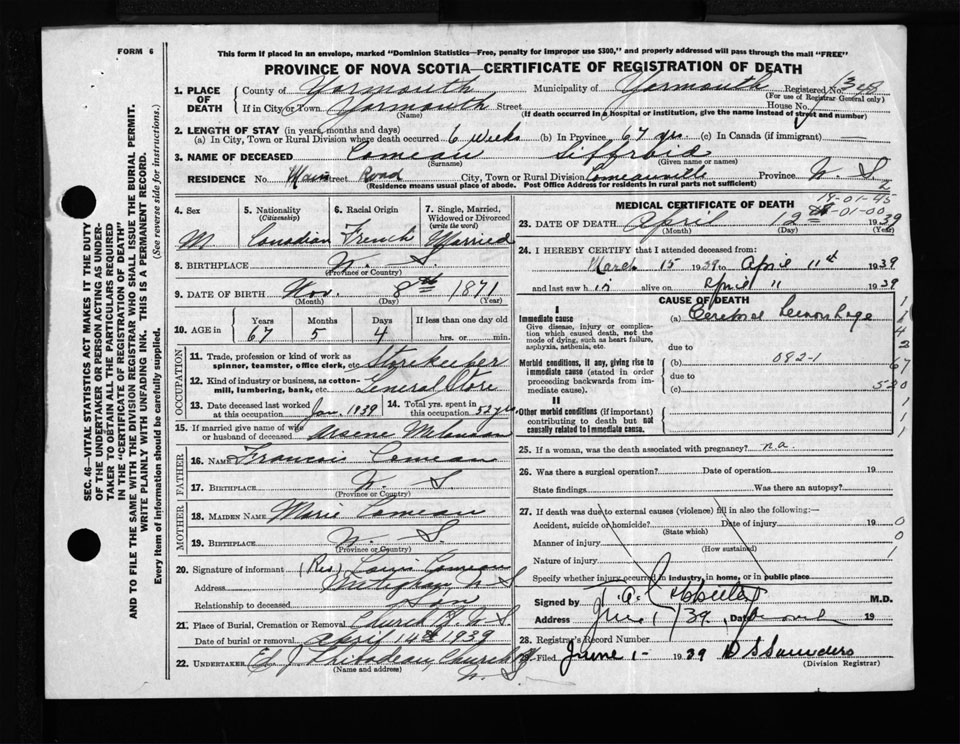 FORM 6
This form if placed in an envelope, marked "Dominion Statistics—Free, penalty for improper use $300," and properly addressed will pass through the mail "FREE"
PROVINCE OF NOVA SCOTIA—CERTIFICATE OF REGISTRATION OF DEATH
1. PLACE OF DEATH County of Yarmouth Municipality of Yarmouth Registered No. 348
(For use of Registrar General only)
If in City or Town Yarmouth Street House No.
(Name) (If death occurred in a hospital or institution, give the name instead of street and number)
2. LENGTH OF STAY (in years, months and days)
(a) In City, Town or Rural Division where death occurred 6 weeks (b) In Province 67 yrs (c) In Canada (if immigrant)
3. NAME OF DECEASED Comeau
(Surname) (Given name or names)
RESIDENCE No. Main Street Road City, Town or Rural Division Comeauville Province N. S.
(Residence means usual place of abode. Post Office Address for residents in rural parts not sufficient)
4. Sex M
5. Nationality (Citizenship) Canadian
6. Racial Origin French
7. Single, Married, Widowed or Divorced (write the word) Married
8. BIRTHPLACE N. S.
(Province or Country)
9. DATE OF BIRTH Nov. 8th 1871
(Month) (Day) (Year)
10. AGE in Years 67 Months 5 Days 4 If less than one day old hrs. or min.
OCCUPATION
11. Trade, profession or kind of work as spinner, teamster, office clerk, etc. Storekeeper
12. Kind of industry or business, as cotton-mill, lumbering, bank, etc. General Store
13. Date deceased last worked at this occupation Jan. 1939
14. Total yrs. spent in this occupation 52 yrs
15. If married give name of wife or husband of deceased Arsene
FATHER
16. NAME Francois Comeau
17. BIRTHPLACE N. S.
(Province or Country)
MOTHER
18. MAIDEN NAME Marie Comeau
19. BIRTHPLACE N. S.
(Province or Country)
20. Signature of informant (Res) Louis Comeau
Address Meteghan N S
Relationship to deceased Son
21. Place of Burial, Cremation or Removal Church Pt. N. S.
Date of burial or removal April 14th 1939
22. UNDERTAKER Ed J Thibodeau Church Pt
(Name and address) N. S.
MEDICAL CERTIFICATE OF DEATH
23. DATE OF DEATH April 12th 1939
(Month) (Day) (Year)
24. I HEREBY CERTIFY that I attended deceased from:
March 15 1939 to April 11th 1939
and last saw h im alive on April 11 1939
CAUSE OF DEATH
I
Immediate cause (a) Cerebral Hemorrhage
Give disease, injury or complication which caused death, not the mode of dying, such as heart failure, asphyxia, asthenia, etc.
due to
Morbid conditions, if any, giving rise to immediate cause (stated in order proceeding backwards from immediate cause).
(b) 082-1
due to
(c)
II
Other morbid conditions (if important) contributing to death but not causally related to immediate cause.
25. If a woman, was the death associated with pregnancy? n.a.
26. Was there a surgical operation? Date of operation 19
State findings Was there an autopsy?
27. If death was due to external causes (violence) fill in also the following:
Accident, suicide or homicide? Date of injury 19
(State which)
Manner of injury
(How sustained)
Nature of injury
Specify whether injury occurred in industry, in home, or in public place
Signed by M.D.
Address Date
28. Registrar's Record Number
Filed June 1- 1939 D S Saunders
(Division Registrar)
SEC. 46—VITAL STATISTICS ACT MAKES IT THE DUTY OF THE UNDERTAKER OR PERSON ACTING AS UNDERTAKER TO OBTAIN ALL THE PARTICULARS REQUIRED IN THE "CERTIFICATE OF REGISTRATION OF DEATH"
AND TO FILE THE SAME WITH THE DIVISION REGISTRAR WHO SHALL ISSUE THE BURIAL PERMIT.
WRITE PLAINLY WITH UNFADING INK. THIS IS A PERMANENT RECORD.
Every item of information should be carefully supplied. (See reverse side for instructions.)